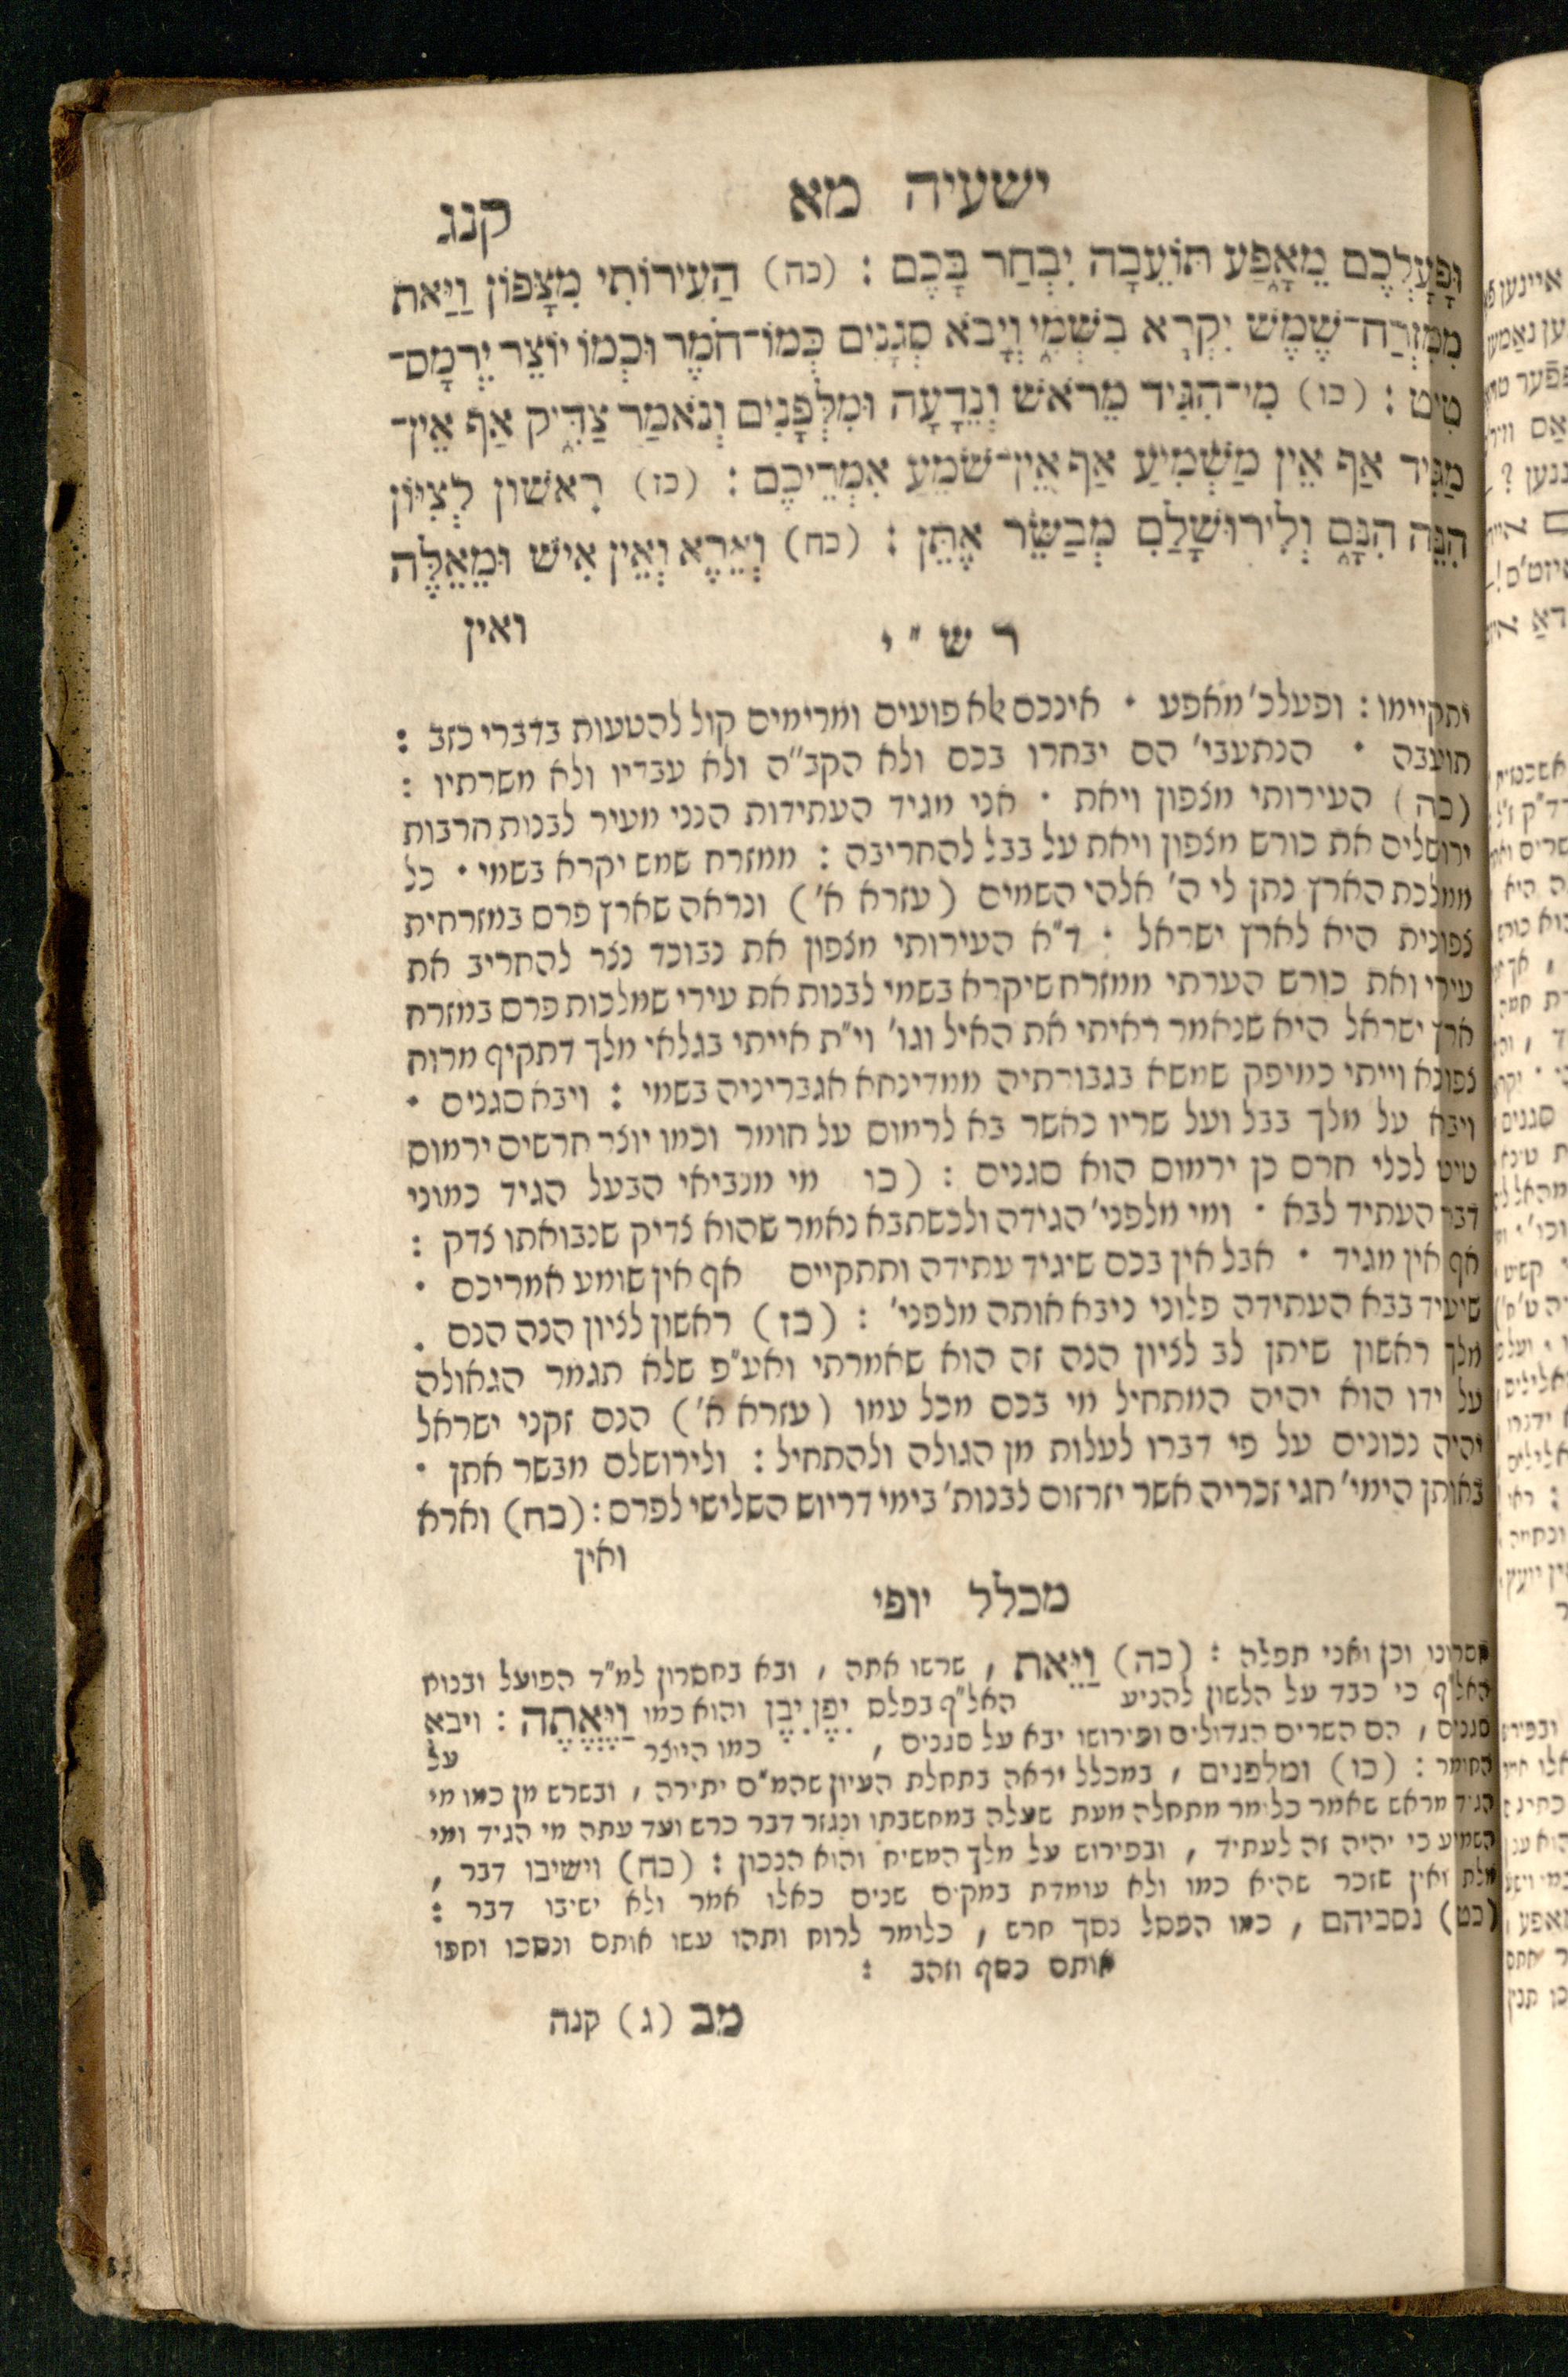 ישעיה מא קנג
וּפָעָלְכֶם מֵאָפַע תּוֹעֵבָה יִבְחַר בָּכֶם : (כה) הַעִירוֹתִי מִצָּפוֹן וַיַּאת
מִמִּזְרַח־שֶׁמֶשׁ יִקְרָא בִשְׁמִי וְיָבֹא סְגָנִים כְּמוֹ־חֹמֶר וּכְמוֹ יוֹצֵר יִרְמָס־
טִיט : (כו) מִי־הִגִּיד מֵרֹאשׁ וְנֵדָעָה וּמִלְּפָנִים וְנֹאמַר צַדִּיק אַף אֵין־
מַגִּיד אַף אֵין מַשְׁמִיעַ אַף אֵין־שֹׁמֵעַ אִמְרֵיכֶם : (כז) רִאשׁוֹן לְצִיּוֹן
הִנֵּה הִנָּם וְלִירוּשָׁלַםִ מְבַשֵּׂר אֶתֵּן : (כח) וְאֵרֶא וְאֵין אִישׁ וּמֵאֵלֶּה
ואין
ר ש " י
יתקיימו : ופעלכ' מאפע • אינכם אלא פועים ומרימים קול להטעות בדברי כזב :
תועבה • הנתעבי' הם יבחרו בכם ולא הקב"ה ולא עבדיו ולא משרתיו :
(כה) העירותי מצפון ויאת • אני מגיד העתידות הנני מעיר לבנות חרבות
ירושלים את כורש מצפון ויאת על בבל להחריבה : ממזרח שמש יקרא בשמי • כל
ממלכת הארץ נתן לי ה' אלהי השמים (עזרא א') ונראה שארץ פרס במזרחית
צפונית היא לארץ ישראל • ד"א העירותי מצפון את נבוכד נצר להחריב את
עירי ואת כורש הערתי ממזרח שיקרא בשמי לבנות את עירי שמלכות פרס במזרח
ארץ ישראל היא שנאמר ראיתי את האיל וגו' וי"ת אייתי בגלאי מלך דתקיף מרוח
צפונא וייתי כמיפק שמשא בגבורתיה ממדינחא אגבריניה בשמי : ויבא סגנים •
ויבא על מלך בבל ועל שריו כאשר בא לרמוס על חומר וכמו יוצר חרשים ירמוס
טיט לכלי חרס כן ירמוס הוא סגנים : (כו מי מנביאי הבעל הגיד כמוני
דבר העתיד לבא • ומי מלפני' הגידה ולכשתבא נאמר שהוא צדיק שנבואתו צדק :
אף אין מגיד • אבל אין בכם שיגיד עתידה ותתקיים אף אין שומע אמריכם •
שיעיד בבא העתידה פלוני ניבא אותה מלפני' : (כז) ראשון לציון הנה הנם .
מלך ראשון שיתן לב לציון הנה זה הוא שאמרתי ואע"פ שלא תגמר הגאולה
על ידו הוא יהיה המתחיל מי בכם מכל עמו (עזרא א') הנם זקני ישראל
יהיה נכונים על פי דברו לעלות מן הגולה ולהתחיל : ולירושלם מבשר אתן •
באותן הימי' חגי זכריה אשר יזרזום לבנות' בימי דריוש השלישי לפרס : (כח) וארא
ואין
מכלל יופי
חסרונו וכן ואני תפלה : (כה) וַיַּאת , שרשו אתה , ובא בחסרון למ"ד הפועל ובנוח
האל"ף כי כבד על הלשון להניע האל"ף בפלס יִפֶן יִבֶן והוא כמו וַיֶּאֱתֶה : ויבא
סגנים , הם השרים הגדולים ופירושו יבא על סגנים , כמו היוצר על
החומר : (כו) ומלפנים , במכלל יראה בתחלת העיון שהמ"ם יתירה , ובשרש מן כמו מי
הגיד מראש שאמר כלומר מתחלה מעת שעלה במחשבתו ונגזר דבר כרש ועד עתה מי הגיד ומי
השמיע כי יהיה זה לעתיד , ובפירוש על מלך המשיח והוא הנכון : (כח) וישיבו דבר ,
מלת ואין שזכר שהיא כמו ולא עומדת במקים שנים כאלו אמר ולא ישיבו דבר :
(כט) נסכיהם , כמו הפסל נסך חרש , כלומר לרוח ותהו עשו אותם ונסכו וחפו
אותם כסף וזהב :
מב (ג) קנה